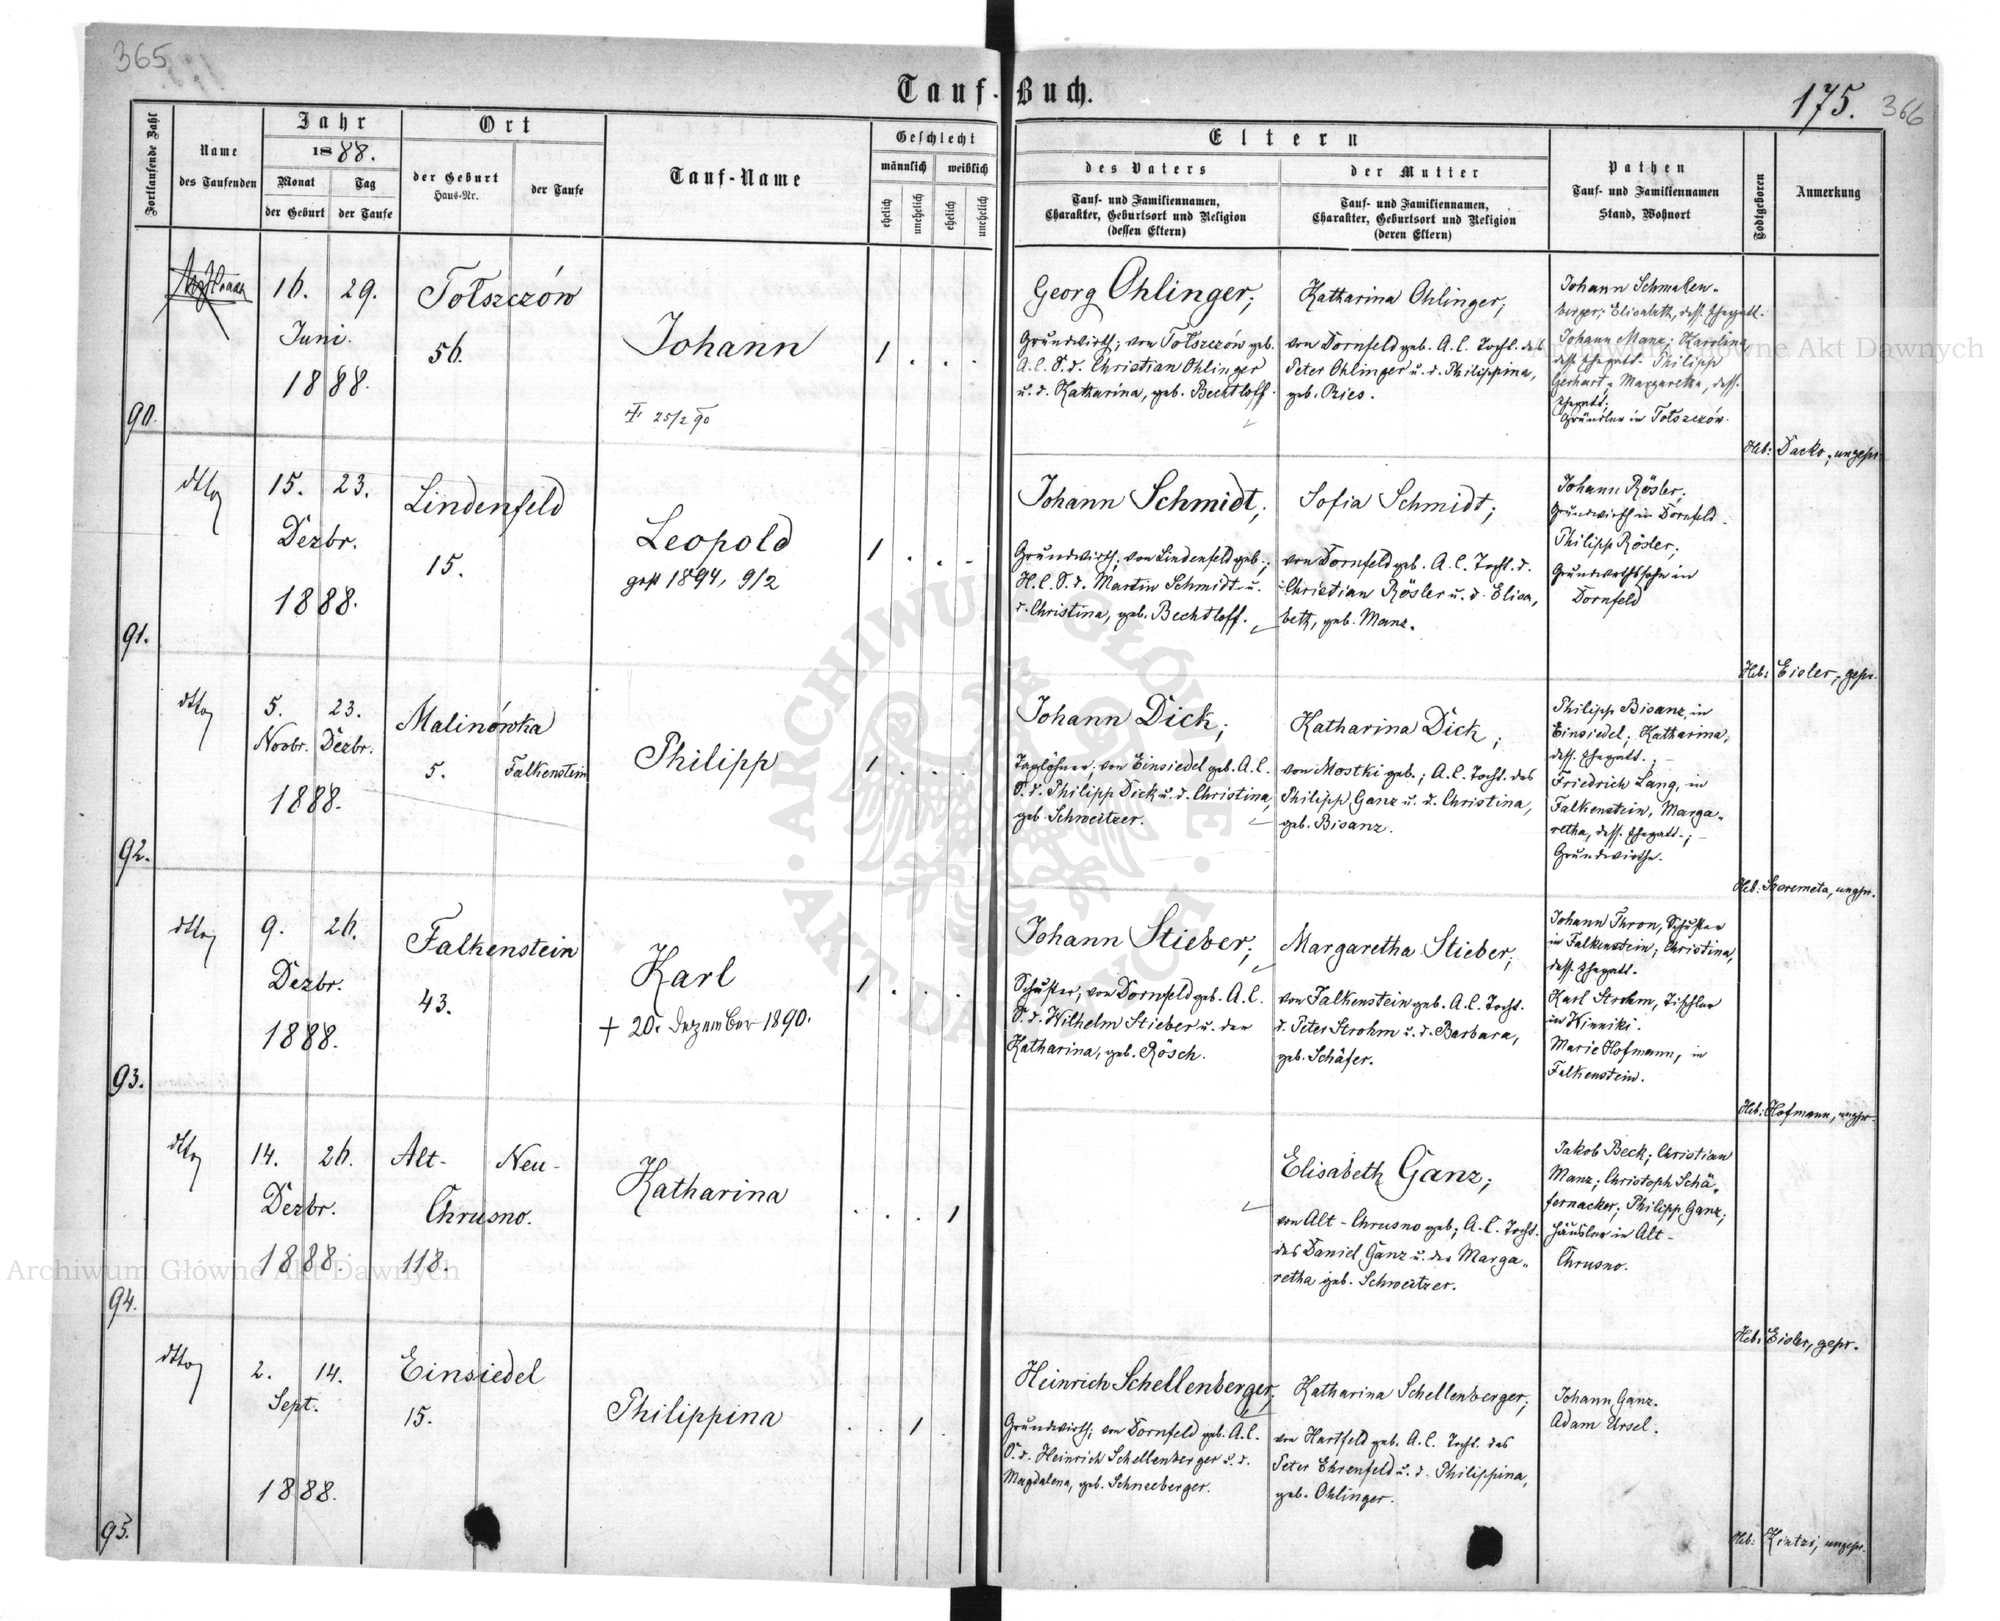 365
Tauf-Buch.
175. 366
Fortlaufende Zahl
Name
des Taufenden
Jahr
1888.
Monat
Tag
der Geburt
der Taufe
Ort
der Geburt
Haus-Nr.
der Taufe
Tauf-Name
Geschlecht
männlich
weiblich
ehelich
unehelich
ehelich
unehelich
Eltern
des Vaters
Tauf- und Familiennamen,
Charakter, Geburtsort und Religion
(dessen Eltern)
der Mutter
Tauf- und Familiennamen,
Charakter, Geburtsort und Religion
(deren Eltern)
Pathen
Tauf- und Familiennamen
Stand, Wohnort
Todtgeboren
Anmerkung
90.
16. 29.
Juni.
1888.
Tołszczów
56.
Johann
25/2 90
1 . . .
Georg Ohlinger;
Grundwirth; von Tołszczów geb.
A.C. S.d. Christian Ohlinger
u. d. Katharina, geb. Bechtloff.
Katharina Ohlinger;
von Dornfeld geb. A.C. Tocht. des
Peter Ohlinger u. d. Philippina,
geb. Ries.
Johann Schmalen-
berger; Elisabeth, dess. Ehegatt.
Johann Manz; Karolina
dess. Ehegatt. Philipp
Gerhart, Margaretha, dess.
Ehegatt.
Gründler in Tołszczów.
Heb: Dacko, ungepr.
91.
dtto
15. 23.
Dezbr.
1888.
Lindenfeld
15.
Leopold
gest 1894, 9/2
1 . . .
Johann Schmidt;
Grundwirth; von Lindenfeld geb.;
H.C. S.d. Martin Schmidt u.
d. Christina, geb. Bechtloff.
Sofia Schmidt;
von Dornfeld geb. A.C. Tocht. d.
Christian Rösler u. d. Elisa,
beth, geb. Manz.
Johann Rösler;
Grundwirth in Dornfeld.
Philipp Rösler;
Grundwirthssohn in
Dornfeld
Heb: Eisler, gepr.
92.
dtto
5. 23.
Novbr. Dezbr.
1888.
Malinówka
5. Falkenstein
Philipp
1 . . .
Johann Dick;
Taglöhner; von Einsiedel geb. A.C.
S.d. Philipp Dick u. d. Christina,
geb. Schweitzer.
Katharina Dick;
von Mostki geb.; A.C. Tocht. des
Philipp Ganz u. d. Christina,
geb. Bisanz.
Philipp Bisanz, in
Einsiedel. Katharina,
dess. Ehegatt.;
Friedrich Lang, in
Falkenstein, Marga-
retha, dess. Ehegatt.;
Grundwirthe.
Heb: Szeremeta, ungpr.
93.
dtto
9. 26.
Dezbr.
1888.
Falkenstein
43.
Karl
+ 20. Dezember 1890.
1 . . .
Johann Stieber;
Schuster, von Dornfeld geb. A.C.
S.d. Wilhelm Stieber u. der
Katharina, geb. Rösch.
Margaretha Stieber;
von Falkenstein geb. A.C. Tocht.
d. Peter Strohm u. d. Barbara,
geb. Schäfer.
Johann Thron, Schuster
in Falkenstein; Christina,
dess. Ehegatt.
Karl Strohm, Tischler
in Winniki.
Marie Hofmann, in
Falkenstein.
Heb: Hofmann, ungpr.
94.
dtto
14. 26.
Dezbr.
1888.
Alt- Neu-
Chrusno.
118.
Katharina
. . . 1
Elisabeth Ganz;
von Alt-Chrusno geb; A.C. Tocht.
des Daniel Ganz u. der Marga-
retha geb. Schweitzer.
Jakob Beck; Christian
Manz; Christoph Schä-
fernacker; Philipp Ganz;
Häusler in Alt-
Chrusno.
Heb: Eisler, gepr.
95.
dtto
2. 14.
Sept.
1888.
Einsiedel
15.
Philippina
. . 1 .
Heinrich Schellenberger;
Grundwirth; von Dornfeld geb. A.C.
S.d. Heinrich Schellenberger u. d.
Magdalena, geb. Schneeberger.
Katharina Schellenberger;
von Hartfeld geb. A.C. Tocht. des
Peter Ehrenfeld u. d. Philippina,
geb. Ohlinger.
Johann Ganz.
Adam Ursel.
Heb: Kintzi, ungepr.
Archiwum Główne Akt Dawnych
Archiwum Główne Akt Dawnych
ARCHIWUM GŁÓWNE AKT DAWNYCH